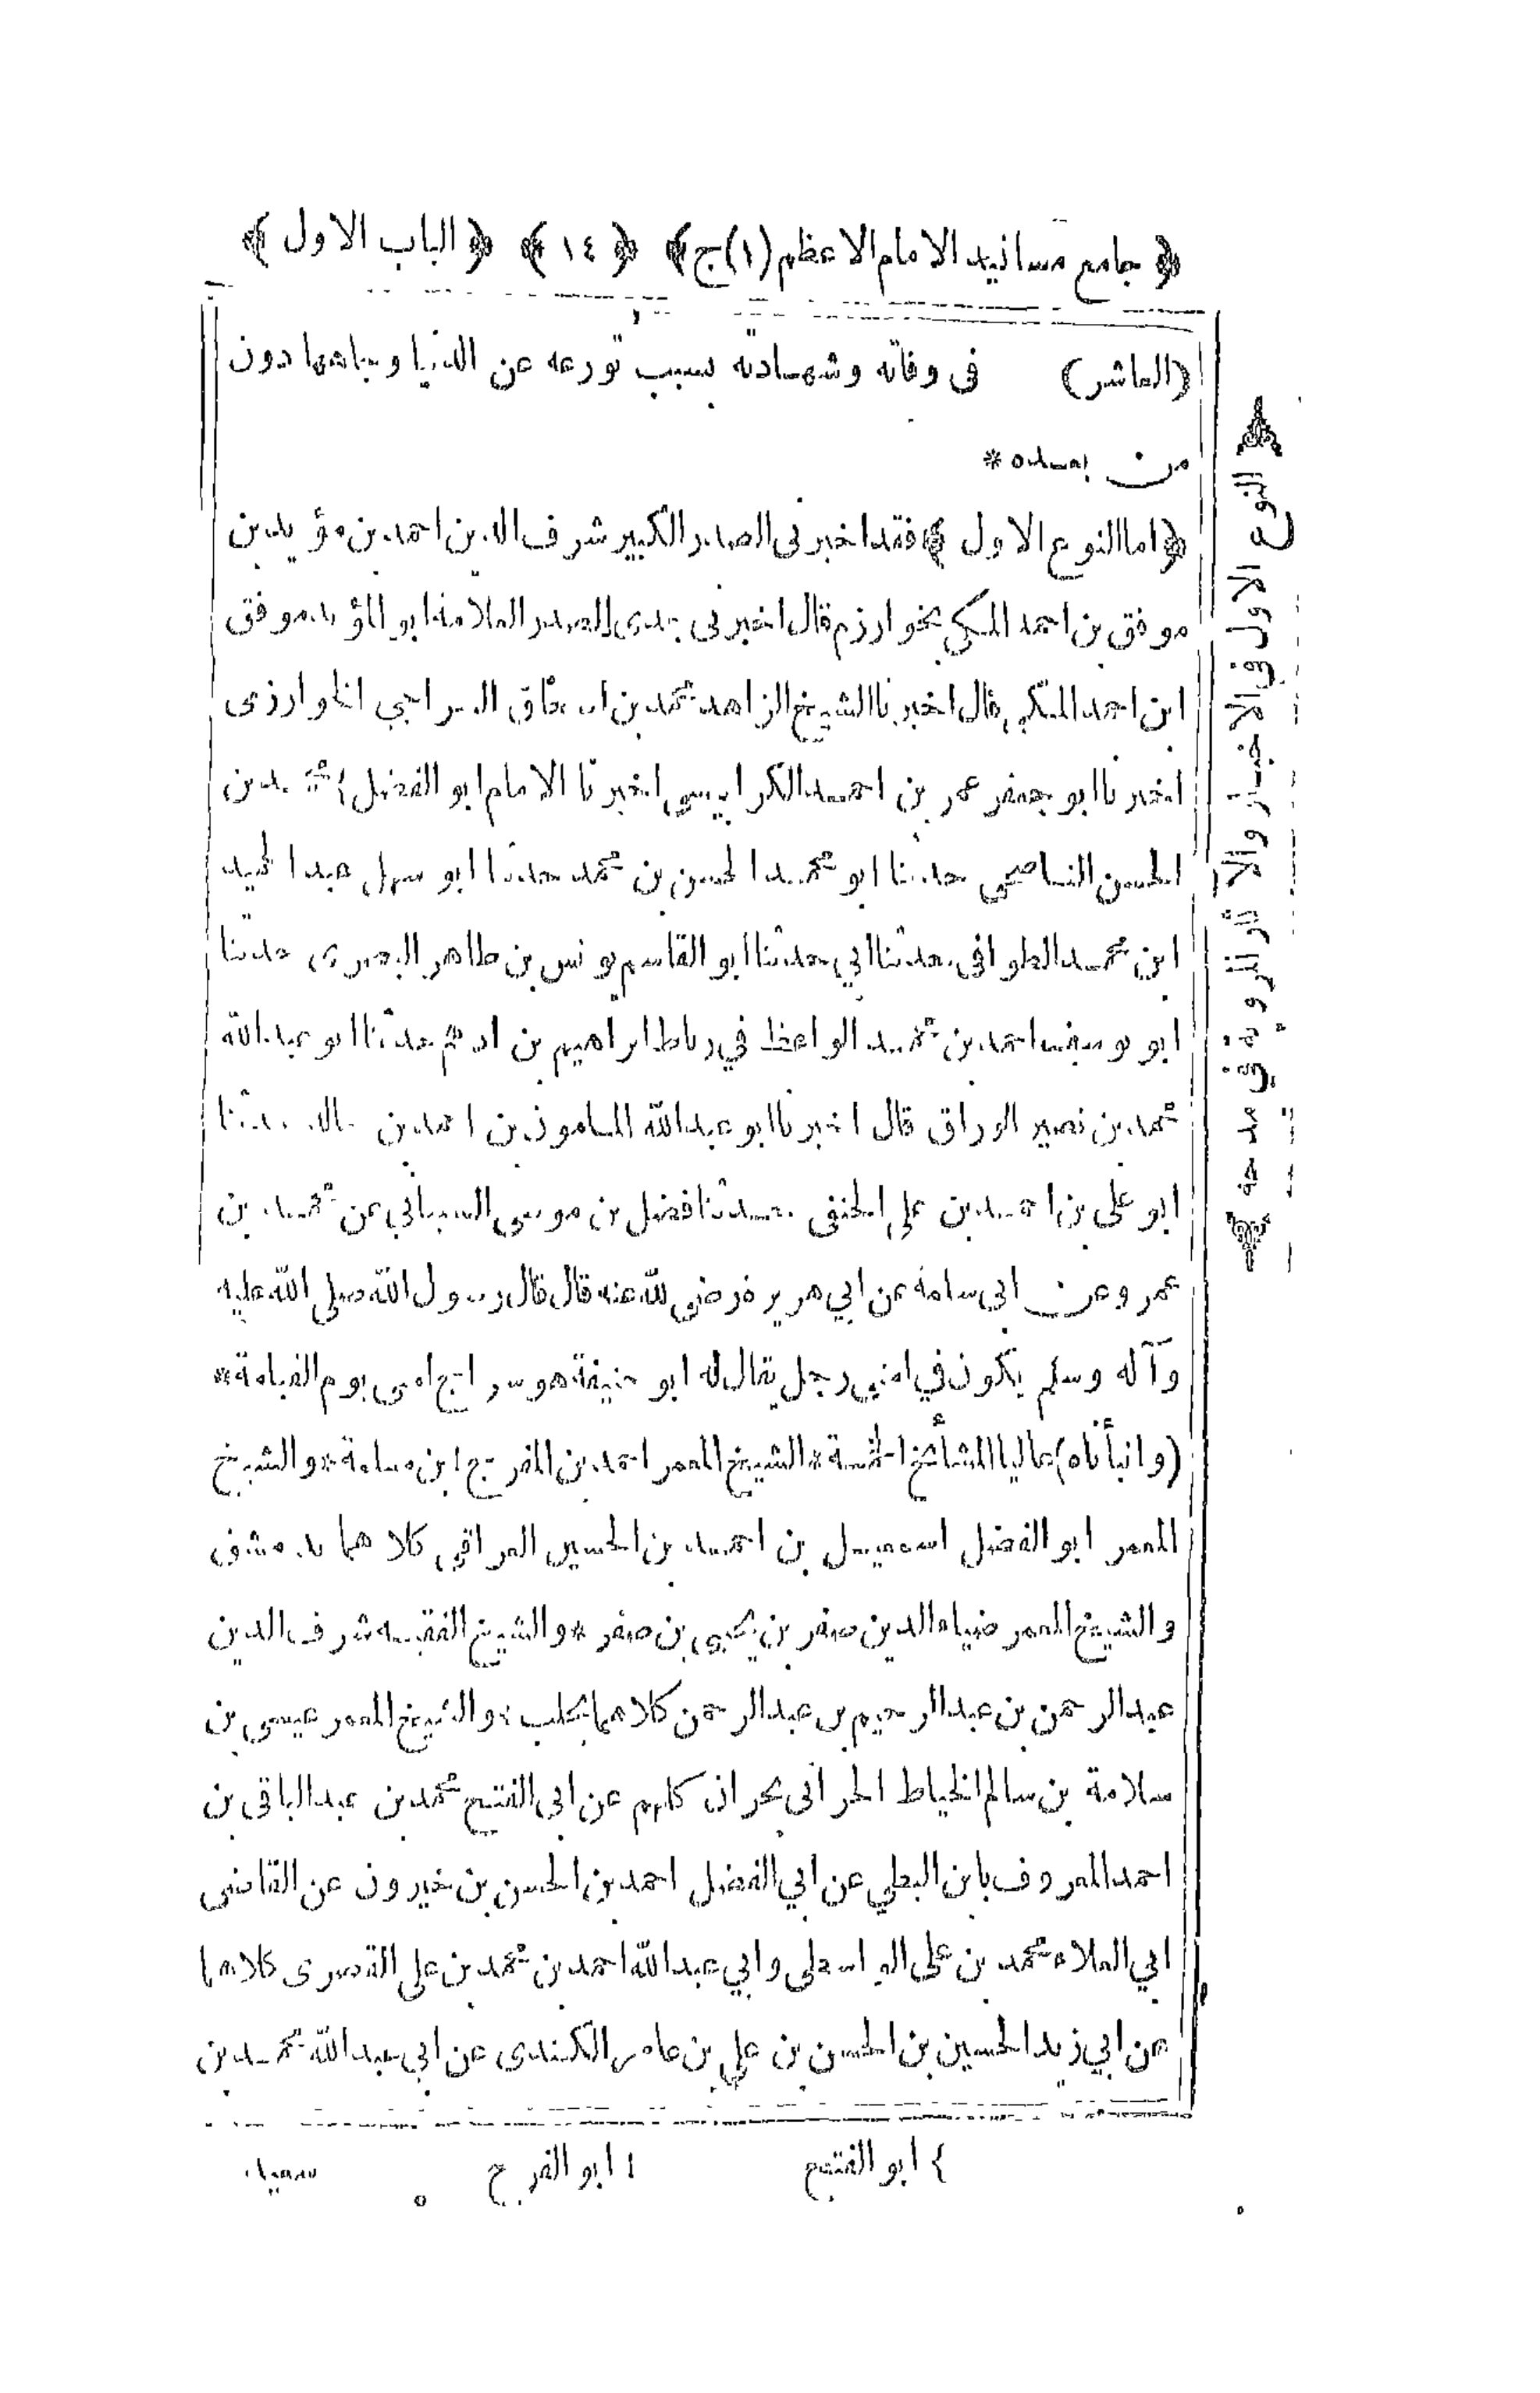 ﴿ جامع مسانيد الامام الاعظم (١) ج ﴾ ﴿ ١٤ ﴾ ﴿ الباب الاول ﴾
(العاشر) فى وفاته وشهادته بسبب تورعه عن الدنيا وجاهها دون
من بعده *
﴿ اما النوع الاول ﴾ فقد اخبرنى الصدر الكبير شرف الدين احمد بن مؤيد بن
موفق بن احمد المكي بخوارزم قال اخبرنى جدى الصدر العلامة ابو المؤيد موفق
ابن احمد المكي قال اخبرنا الشيخ الزاهد محمد بن اسحاق السراجي الخوارزمى
اخبرنا ابو جعفر عمر بن احمد الكرابيسى اخبرنا الامام ابو الفضل محمد بن
الحسن الناصحى حدثنا ابو محمد الحسن بن محمد حدثنا ابو سهل عبد الحميد
ابن محمد الطوافى حدثنا ابي حدثنا ابو القاسم يونس بن طاهر البصرى حدثنا
ابو يوسف احمد بن محمد الواعظ في رباط ابراهيم بن ادهم حدثنا ابو عبد الله
محمد بن نصير الوراق قال اخبرنا ابو عبد الله المامون بن احمد بن خالد حدثنا
ابو على بن احمد بن على الحنفى حدثنا فضل بن موسى السيناني عن محمد بن
عمرو عن ابى سلمة عن ابي هريرة رضي الله عنه قال قال رسول الله صلى الله عليه
وآله وسلم يكون في امتي رجل يقال له ابو حنيفة هو سراج امتى يوم القيامة *
(وانبأناه) عاليا المشائخ الخمسة * الشيخ المعمر احمد بن المفرج ابن مسلمة * والشيخ
المعمر ابو الفضل اسمعيل بن احمد بن الحسين العراقي كلاهما بدمشق
والشيخ المعمر ضياء الدين صقر بن يحيى بن صقر * والشيخ الفقيه شرف الدين
عبد الرحمن بن عبد الرحيم بن عبد الرحمن كلاهما بحلب * والشيخ المعمر عيسى بن
سلامة بن سالم الخياط الحرانى بحران كلهم عن ابى الفتح محمد بن عبد الباقى بن
احمد المعروف بابن البطي عن ابي الفضل احمد بن الحسن بن خيرون عن القاضى
ابي العلاء محمد بن على الواسطى وابي عبد الله احمد بن محمد بن على القصرى كلاهما
عن ابي زيد الحسين بن الحسن بن علي بن عامر الكندى عن ابي عبد الله محمد بن
ابو الفتح ١ ابو الفرج سعيد
﴿ النوع الاول في الاخبار والآثار المروية في مدحه ﴾